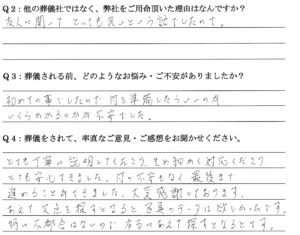 Q2：他の葬儀社ではなく、弊社をご用命頂いた理由はなんですか？
友人に聞いてとっても良いという話でしたので。
Q3：葬儀される前、どのようなお悩み・ご不安がありましたか？
初めての事でしたので 何を準備したらいいのか
いくらかかるのかが不安でした。
Q4：葬儀をされて、率直なご意見・ご感想をお聞かせください。
とても丁寧に説明してくださり、きめ細かく対応くださり
とても安心できました。何の不安もなく最後まで
進めることができました。大変感謝しております。
あえて欠点を探すとなると写真のデータは欲しかったです。
特に不都合はないので、本当にあえて探すとなるとです。